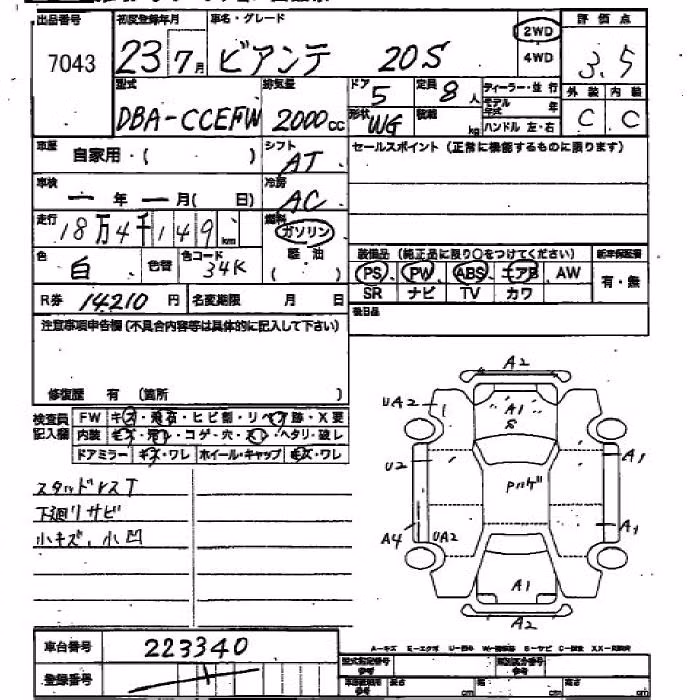 出品番号 初度登録年月 車名・グレード 2WD 4WD 評価点
7043 23年7月 ビアンテ 20S 3.5
型式 排気量 ドア 定員 ディーラー・並行 外装 内装
DBA-CCEFW 2000cc 5 8人 モデル年式 年 C C
形状 WG 積載 kg ハンドル 左・右
車歴 自家用・( ) シフト AT セールスポイント (正常に機能するものに限ります)
車検 一年一月( 日) 冷房 AC
走行 18万4千149km 燃料 ガソリン 軽油 ( )
色 白 色替 色コード 34K
装備品 (純正品に限り○をつけてください) 新車保証書
PS PW ABS エアB AW 有・無
SR ナビ TV カワ
R券 14210円 名変期限 月 日 後日品
注意事項申告欄(不具合内容等は具体的に記入して下さい)
修復歴 有 (箇所 )
検査員記入欄 FW キズ・飛石・ヒビ割・リペア跡・X要
内装 キズ・汚れ・コゲ・穴・スレ・ヘタリ・破レ
ドアミラー キズ・ワレ ホイール・キャップ キズ・ワレ
スタッドレスT
下廻リサビ
小キズ、小凹
A2
UA2 A1 S
U2 A1
A4 UA2 A1
A1
A2
車台番号 223340
登録番号
A-キズ E-エクボ U-凹
型式指定番号 類別区分番号
長さ cm 幅 cm 高さ cm